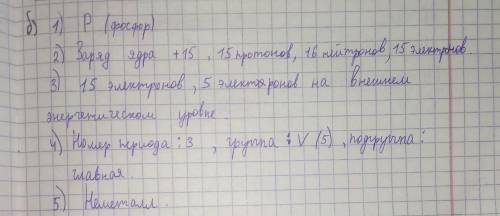 б) 1) P (фосфор)
2) Заряд ядра +15, 15 протонов, 16 нейтронов, 15 электронов
3) 15 электронов, 5 электронов на внешнем
энергетическом уровне.
4) Номер периода: 3, группа: V (5), подгруппа:
главная.
5) Неметалл.